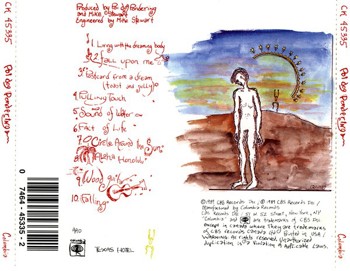 CK 45335
Produced by
Engineered by Mike Stewart
1 Living with the dreaming body
2 Fall upon me
3 Postcard from a dream
(toast and jelly)
4 Pulling Touch
5 Sound of Water
6 Fact of Life
7 Circle Around the Sun
8 Aloha Honolulu
9 Wood guitar
10. Falling
TEXAS HOTEL
0 7464-45335-2
Columbia
CK 45335
Columbia
℗ 1989 CBS Records Inc. / © 1989 CBS Records Inc. /
Manufactured by Columbia Records
CBS Records Inc. / 51 W. 52 Street, New York, NY
"Columbia" and are trademarks of CBS Inc.
except in Canada where they are trademarks
of CBS Records Canada Printed in USA /
All rights reserved. Unauthorized
duplication is a violation of applicable laws.